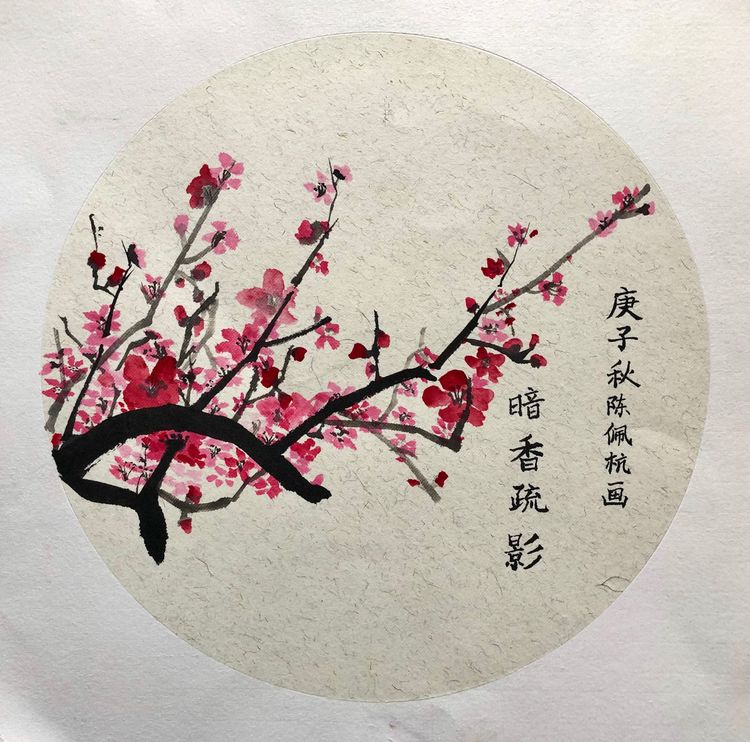 庚子秋陈佩杭画
暗香疏影